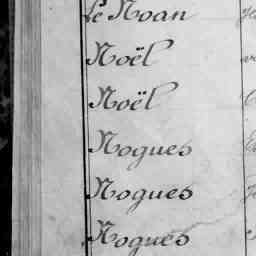 Le Noan
Noël
Noël
Nogues
Nogues
Nogues